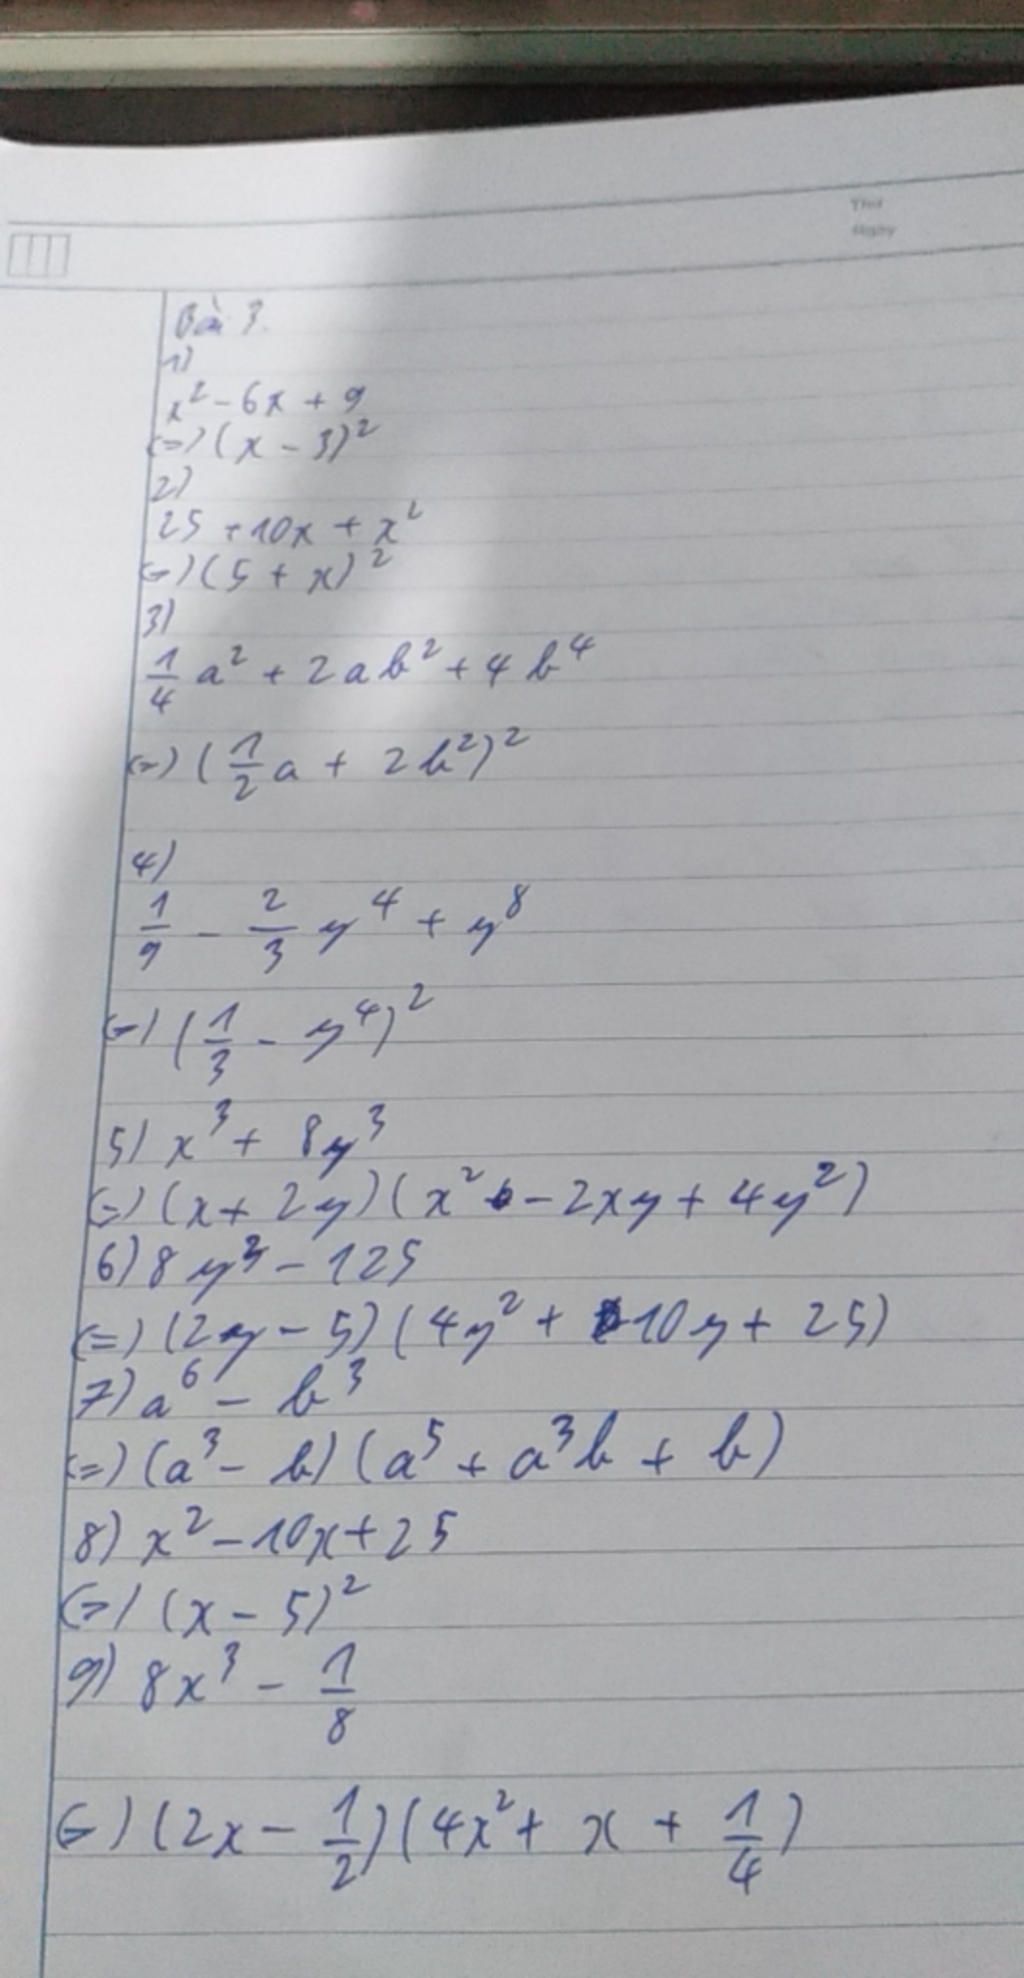 Thứ
Ngày
Bài 3.
1)
x² - 6x + 9
(=) (x - 3)²
2)
25 + 10x + x²
(=) (5 + x)²
3)
1/4 a² + 2ab² + 4b⁴
(=) (1/2 a + 2b²)²
4)
1/9 - 2/3 y⁴ + y⁸
(=) (1/3 - y⁴)²
5) x³ + 8y³
(=) (x + 2y)(x² - 2xy + 4y²)
6) 8y³ - 125
(=) (2y - 5)(4y² + 10y + 25)
7) a⁶ - b³
(=) (a³ - b)(a⁵ + a³b + b)
8) x² - 10x + 25
(=) (x - 5)²
9) 8x³ - 1/8
(=) (2x - 1/2)(4x² + x + 1/4)